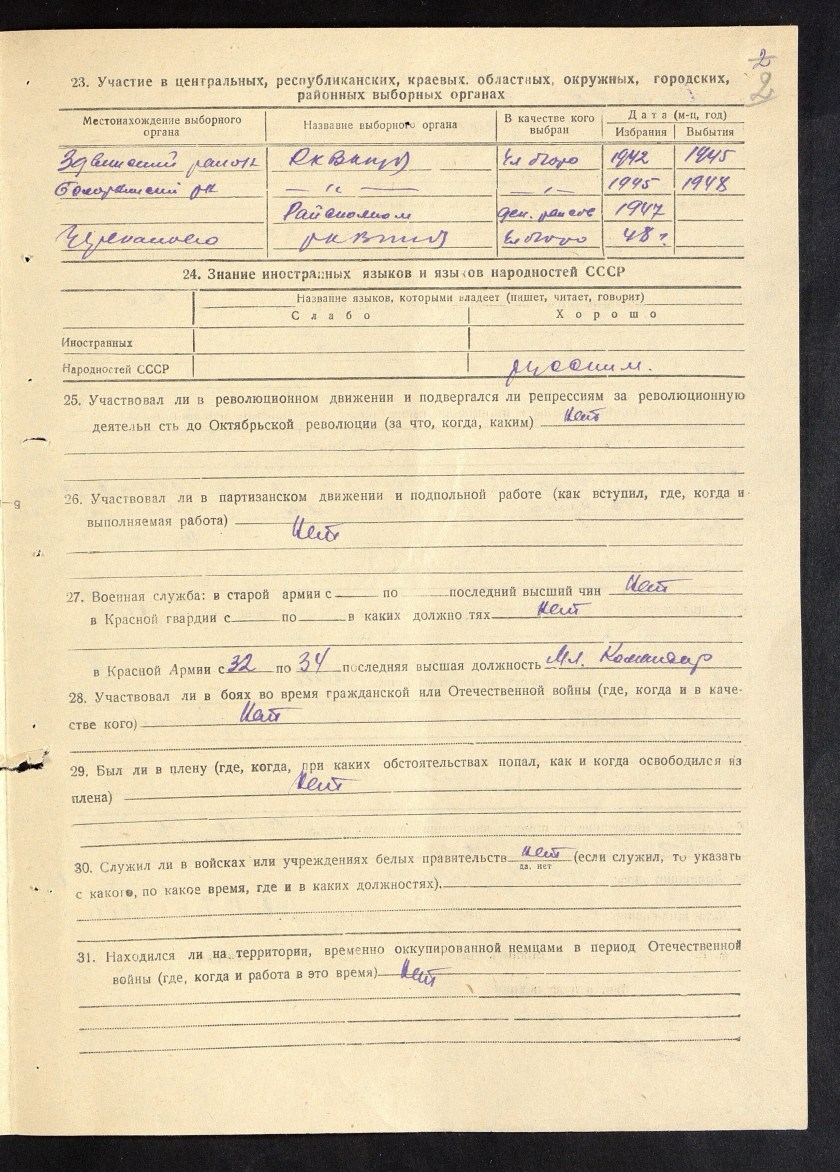 2
2
23. Участие в центральных, республиканских, краевых. областных, окружных, городских,
районных выборных органах
Местонахождение выборного органа | Название выборного органа | В качестве кого выбран | Дата (м-ц, год)
Избрания | Выбытия
Здвинский район | РК ВКП(б) | Чл бюро | 1942 | 1945
Болотнинский рн | — „ — | — „ — | 1945 | 1948
Райсполком | деп. райсов | 1947
Черепаново | РК ВКП(б) | Чл бюро | 48 г.
24. Знание иностранных языков и языков народностей СССР
Название языков, которыми владеет (пишет, читает, говорит)
Слабо | Хорошо
Иностранных
Народностей СССР | русским.
25. Участвовал ли в революционном движении и подвергался ли репрессиям за революционную
деятельн сть до Октябрьской революции (за что, когда, каким) Нет
26. Участвовал ли в партизанском движении и подпольной работе (как вступил, где, когда и
выполняемая работа) Нет
27. Военная служба: в старой армии с по последний высший чин Нет
в Красной гвардии с по в каких должно тях Нет
в Красной Армии с 32 по 34 последняя высшая должность Мл. Командир
28. Участвовал ли в боях во время гражданской или Отечественной войны (где, когда и в каче-
стве кого) Нет
29. Был ли в плену (где, когда, при каких обстоятельствах попал, как и когда освободился из
плена) Нет
30. Служил ли в войсках или учреждениях белых правительств Нет (если служил, то указать
да, нет
с какого, по какое время, где и в каких должностях).
31. Находился ли на территории, временно оккупированной немцами в период Отечественной
войны (где, когда и работа в это время) Нет